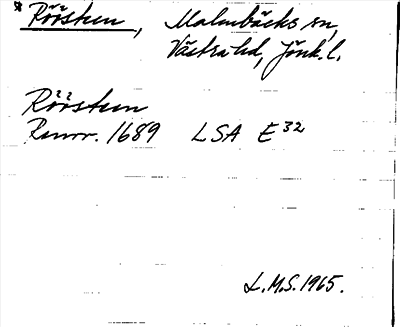 * Röösten, Malmbäcks sn,
Västra hd, Jönk. l.
Röösten
Ransr. 1689 LSA E 32
L.M.S. 1965.